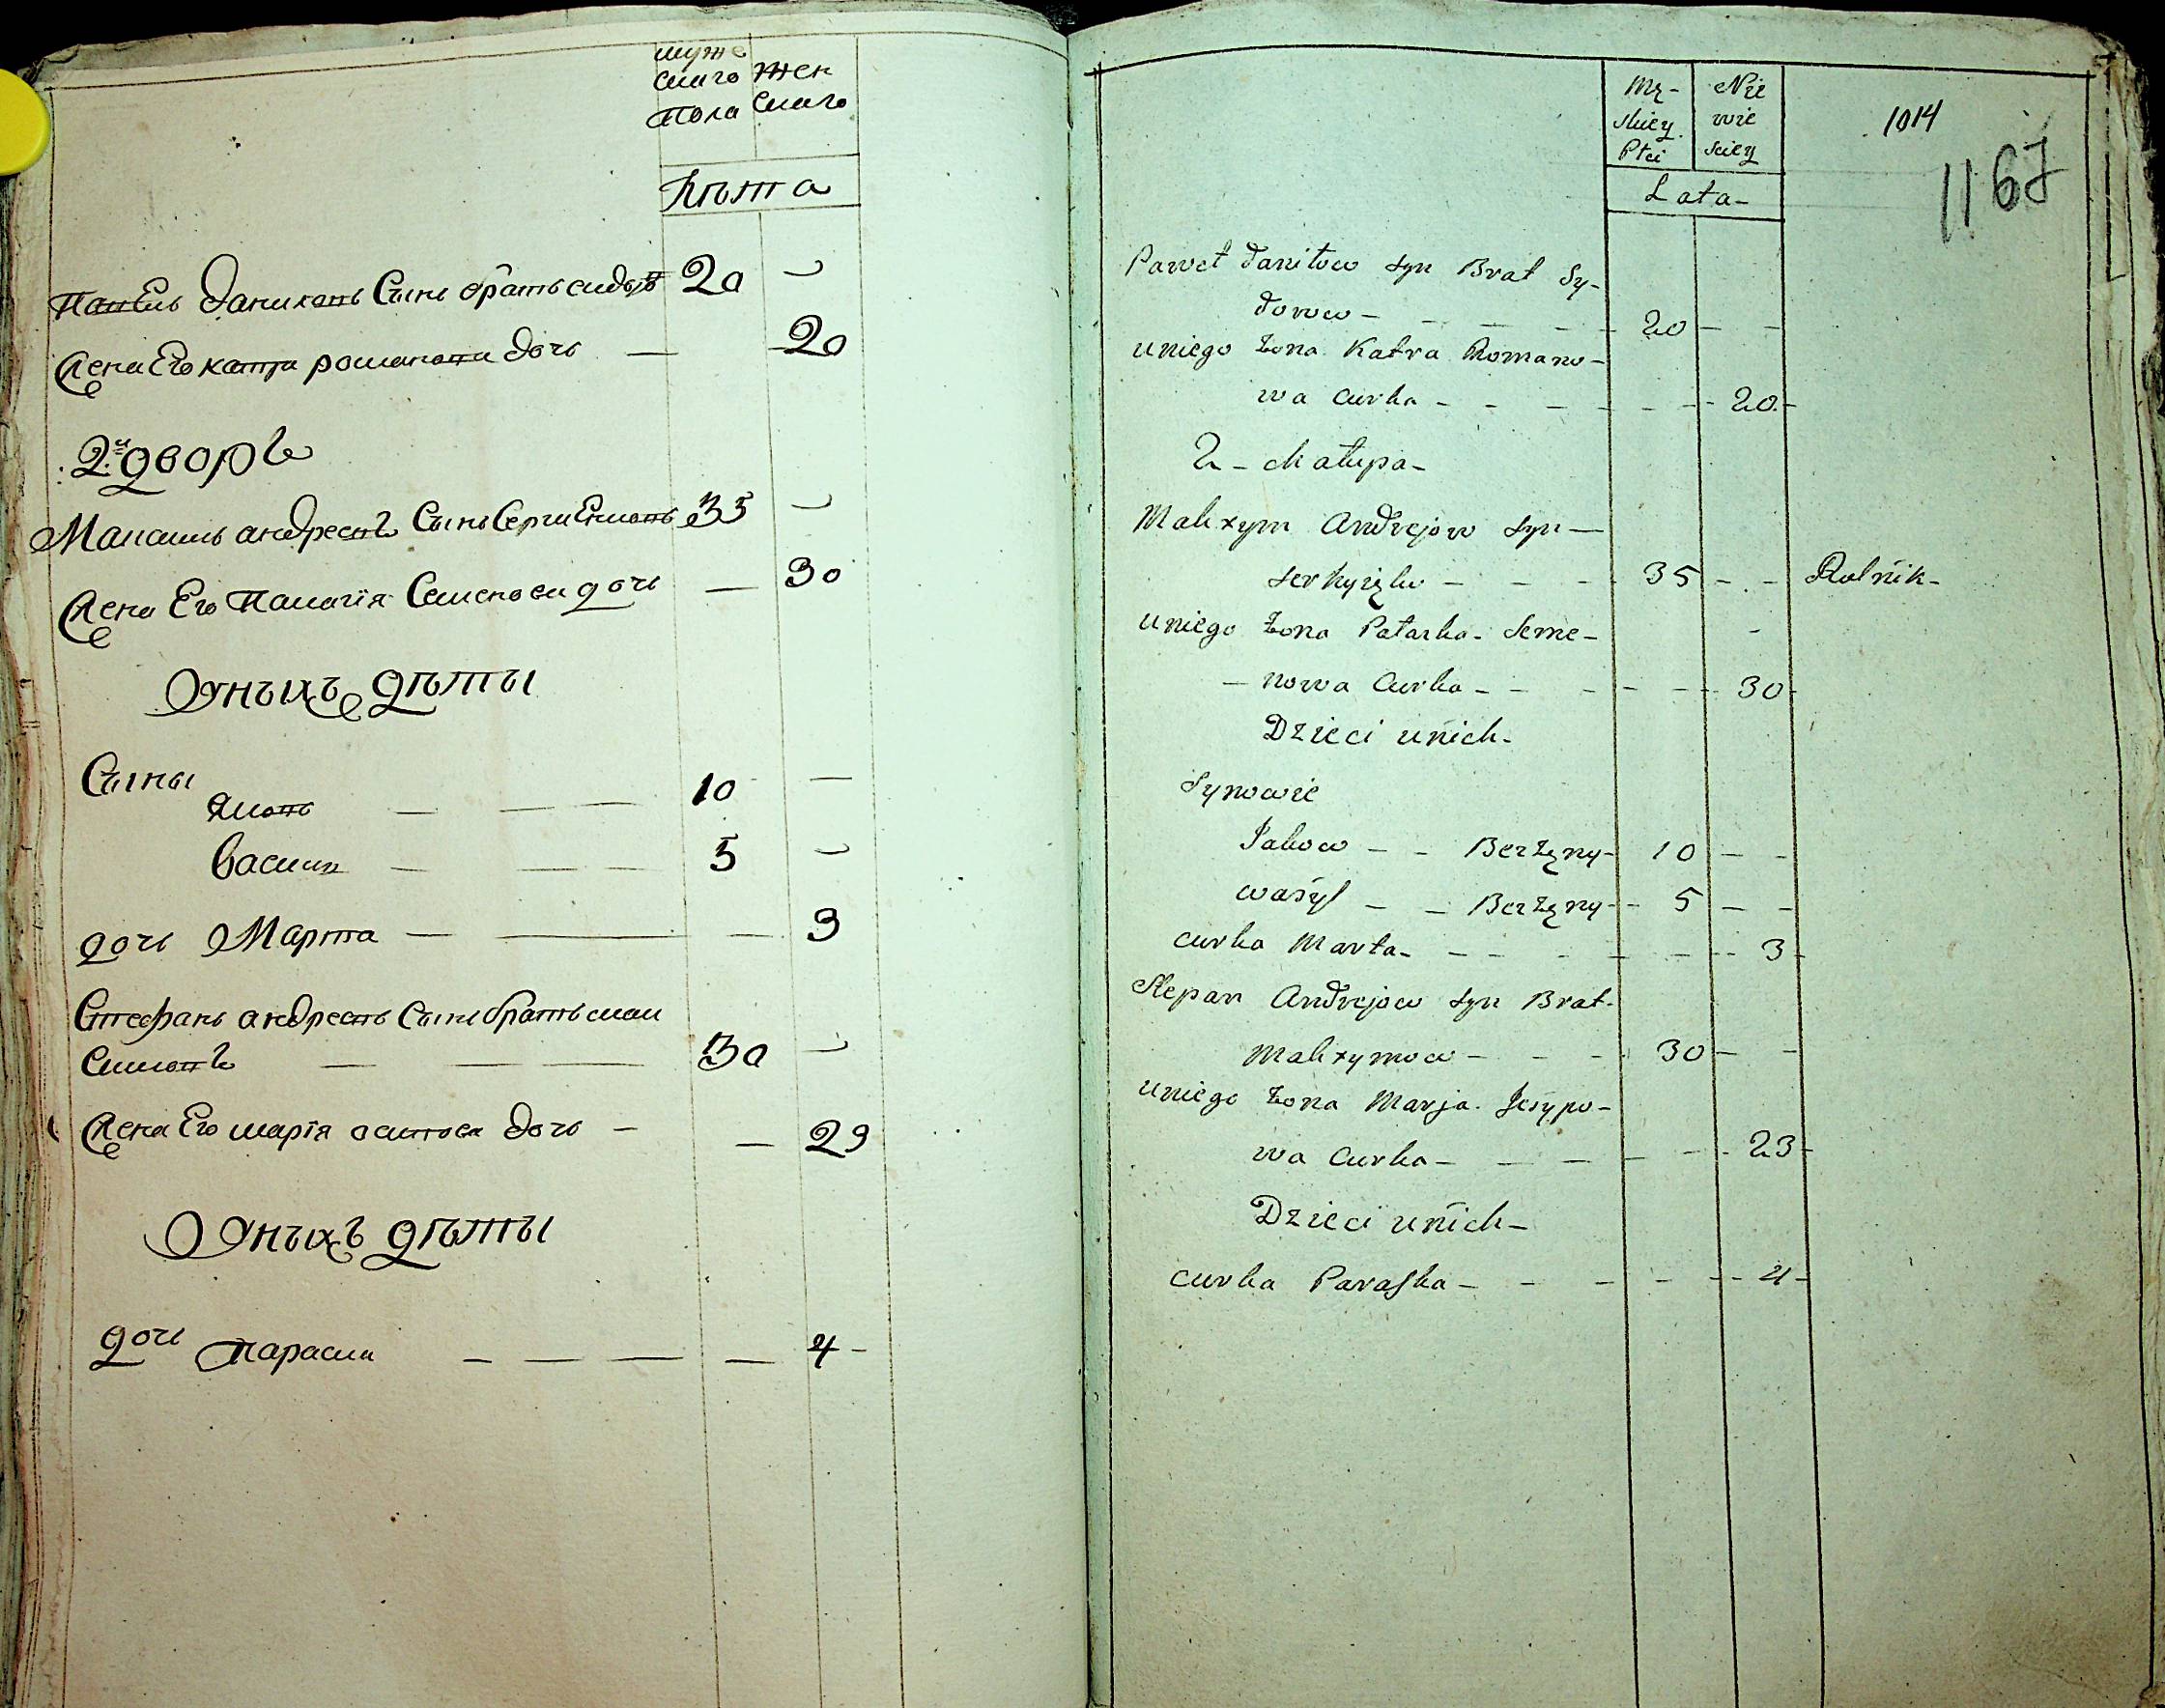 муже
скаго жен
пола скаго
Лѣта
Павелъ даниловъ Сынъ братъ сидоръ 20
Жена Его катра романова дочь — 20
2й дворъ
Максимъ андреевъ Сынъ 35
Жена Его Палагія Семенова дочь — 30
Оу ныхъ дѣты
Сыны
Яковъ — — — 10 —
Васил — — — 5
дочь Марта — — — 3
Стефанъ андреевъ Сынъ братъ мак
симовъ — — — 30
Жена Его марія осипова дочь — — 29
Оу ныхъ дѣты
дочь Параска — — — — 4 -
Mę- Nie
skiey wie
Płci sciey
Lata-
1014
1167
Paweł Daniłow syn Brat Sy-
dorow - - - - 20 - -
uniego żona Katra Romano-
wa curka - - - - - 20 -
2 - Chałupa -
Makxym Andrejow syn —
- - - 35 - - Rolnik -
uniego żona Pałaska Seme-
- nowa Curka - - - - - 30 -
Dzieci unich -
Synowie
Jakow - - Bezżęny - 10 - -
Wasyl - - Bezżęny - 5 - -
curka Marta - - - - - - 3 -
Stepan Andrejow syn Brat -
Makxymow - - - 30 - -
uniego żona Marja Jesypo-
wa Curka - - - - - 23 -
Dzieci unich -
curka Paraska - - - - - 4 -